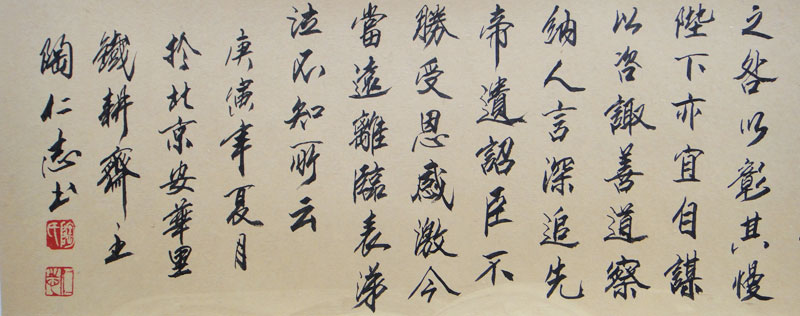 之咎以彰其慢
陛下亦宜自謀
以咨諏善道察
納人言深追先
帝遺詔臣不
勝受恩感激今
當遠離臨表涕
泣不知所云
庚寅年夏月
扵北京安華里
鐵耕齋主
陶仁志书
陶氏
仁志